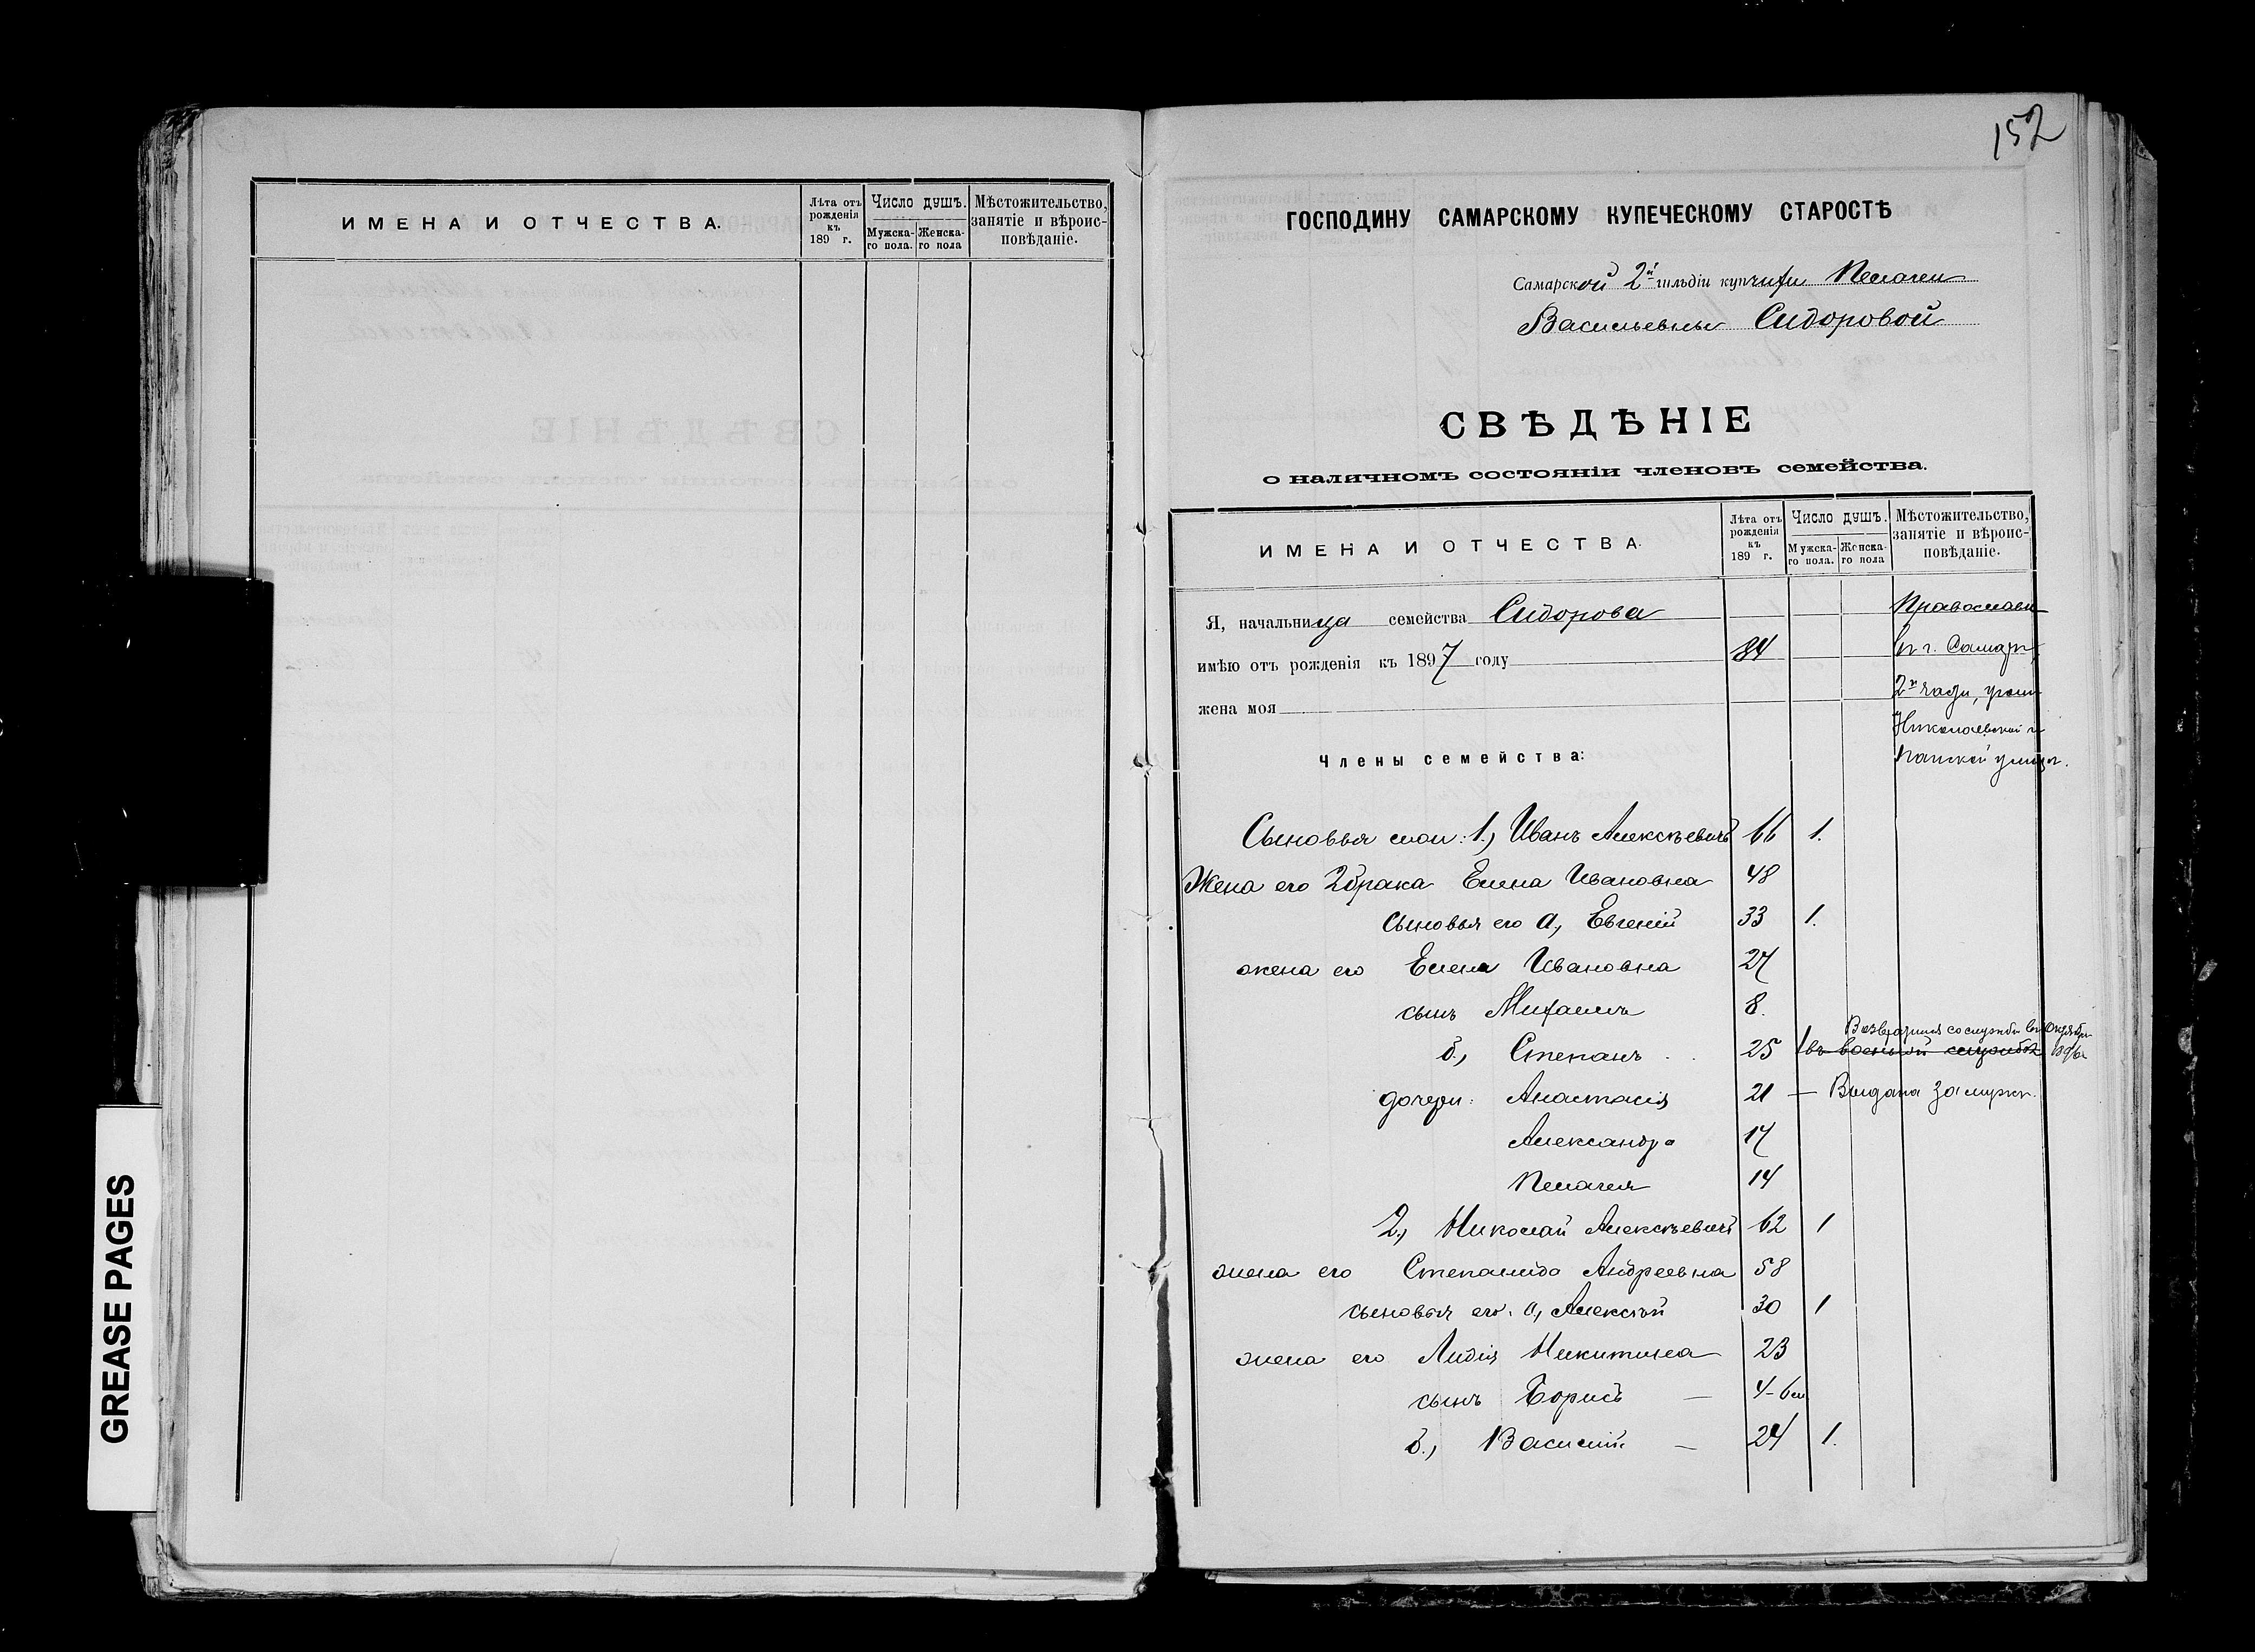 ИМЕНА И ОТЧЕСТВА.
Лѣта отъ рожденія къ 189 г.
Число душъ.
Мужска-го пола.
Женска-го пола
Мѣстожительство, занятіе и вѣроис-повѣданіе.
GREASE PAGES
152
ГОСПОДИНУ САМАРСКОМУ КУПЕЧЕСКОМУ СТАРОСТѢ
Самарской 2й гильдіи купчихи Пелагеи
Васильевны Сидоровой
СВѢДѢНІЕ
о наличномъ состояніи членовъ семейства.
ИМЕНА И ОТЧЕСТВА.
Лѣта отъ рожденія къ 189 г.
Число душъ.
Мужска-го пола.
Женска-го пола
Мѣстожительство, занятіе и вѣроис-повѣданіе.
Я, начальница семейства Сидорова
имѣю отъ рожденія къ 1897 году 84
жена моя
Православн
въ г. Самарѣ,
2й части,
Николаевской и
Панской улицъ.
Члены семейства:
Сыновья мои: 1, Иванъ Алексѣевичъ 66 1.
Жена его 2 брака Елена Ивановна 48
сыновья его а, Евгеній 33 1.
жена его Елена Ивановна 27
сынъ Михаилъ 8.
Возвратился со службы въ Октябрѣ
б., Степанъ 25 1 въ военной службѣ
дочери: Анастасія 21 — Выдана замужъ.
Александра 17
Пелагея 14
2, Николай Алексѣевичъ 62 1
жена его Степанида Андреевна 58
сыновья его: а, Алексѣй 30 1
жена его Лидія Никитина 23
сынъ Борисъ — 4-6м
б., Василій — 24 1.